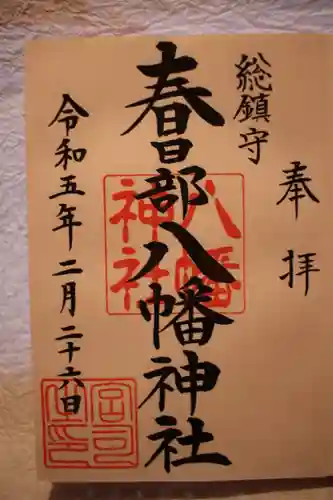 奉拝
総鎮守
春日部八幡神社
八幡
神社
令和五年二月二十六日
宮司之印